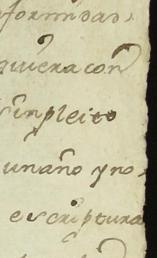 formidad,
quiera con
sin pleito
un año y no
escriptura